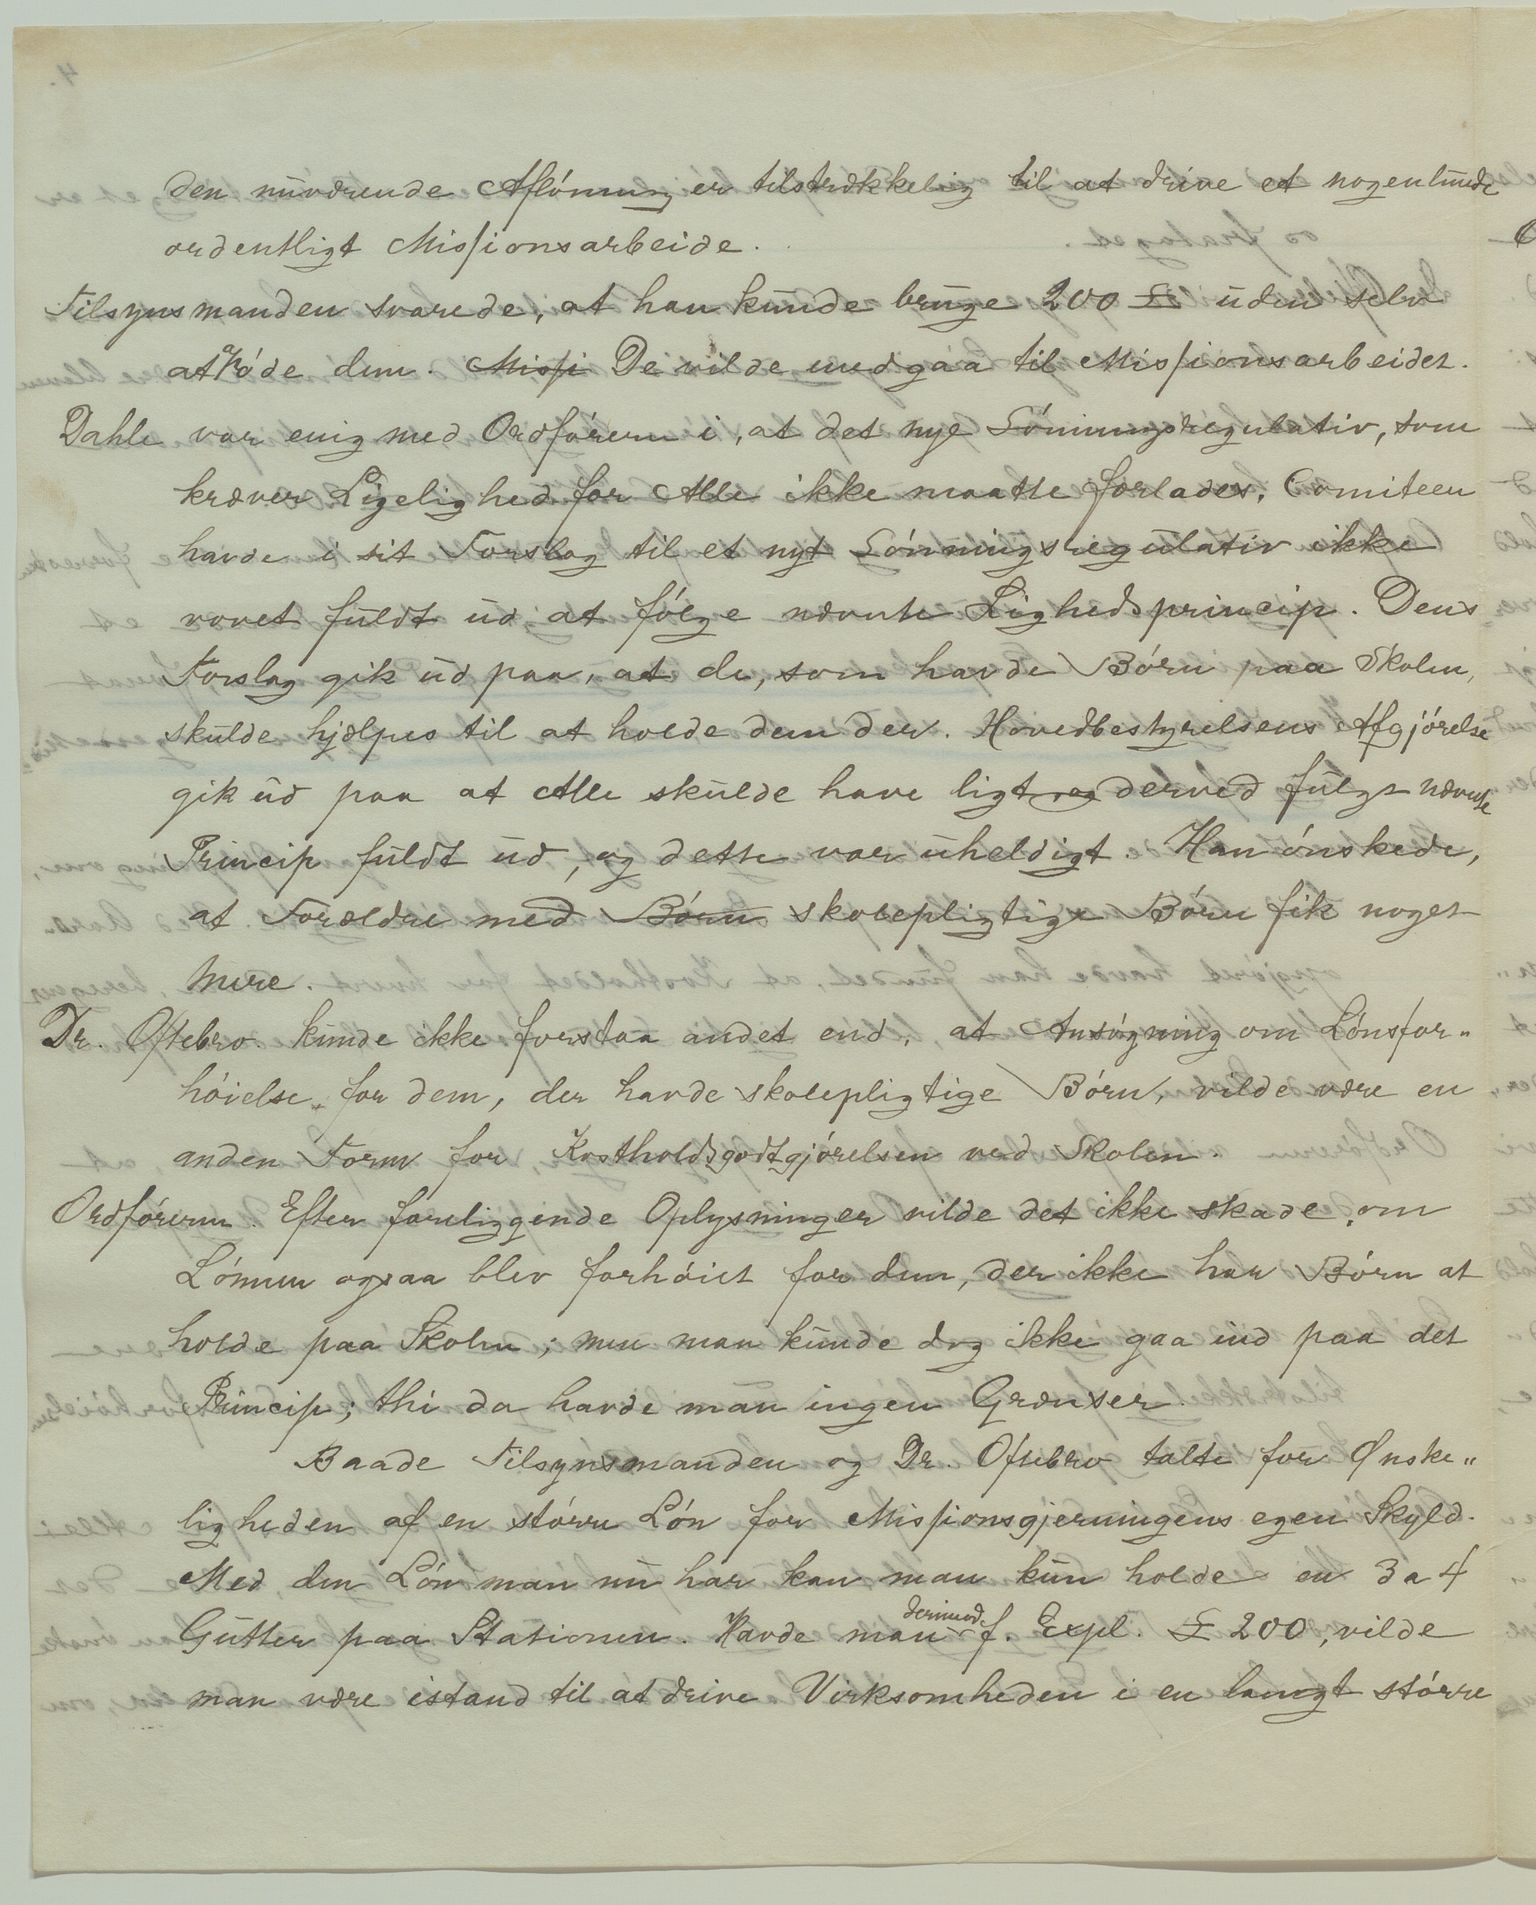 den nuværende Aflönning er tilstrækkelig til at drive et nogenlunde
ordentligt Missionsarbeide.
Tilsynsmanden svarede, at han kunde bruge 200 £ uden selv
at öde dem. Missi De vilde medgaa til Missionsarbeidet.
Dahle var enig med Ordföreren i, at det nye Lönningsregulativ, som
kræver Ligelighed for Alle ikke maatte forlades. Comiteen
havde i sit Forslag til et nyt Lönningsregulativ ikke
vovet fuldt ud at fölge nævnte Lighedsprincip. Dens
Forslag gik ud paa, at de, som havde Börn paa Skolen,
skulde hjælpes til at holde dem der. Hovedbestyrelsens Afgjörelse
gik ud paa at Alle skulde have ligt og derved fulgt nævnte
Princip fuldt ud, og dette var uheldigt. Han önskede,
at Forældre med Börn skolepligtige Börn fik noget
mere.
Dr. Oftebro. kunde ikke forstaa andet end, at Ansögning om Lönsfor„
höielse for dem, der havde skolepligtige Börn, vilde være en
anden Form for Kostholdsgodtgjörelsen ved Skolen.
Ordföreren. Efter foreliggende Oplysninger vilde det ikke skade, om
Lönnen ogsaa blev forhöiet for dem, der ikke har Börn at
holde paa Skolen; men man kunde dog ikke gaa ind paa det
Princip; thi da havde man ingen Grænser.
Baade Tilsynsmanden og Dr. Oftebro talte for Ønske„
ligheden af en större Lön for Missionsgjerningens egen Skyld.
Med den Lön man nu har kan man kun holde en 3 a 4
Gutter paa Stationen. Havde man derimod f. Expl. £ 200, vilde
man være istand til at drive Virksomheden i en langt större